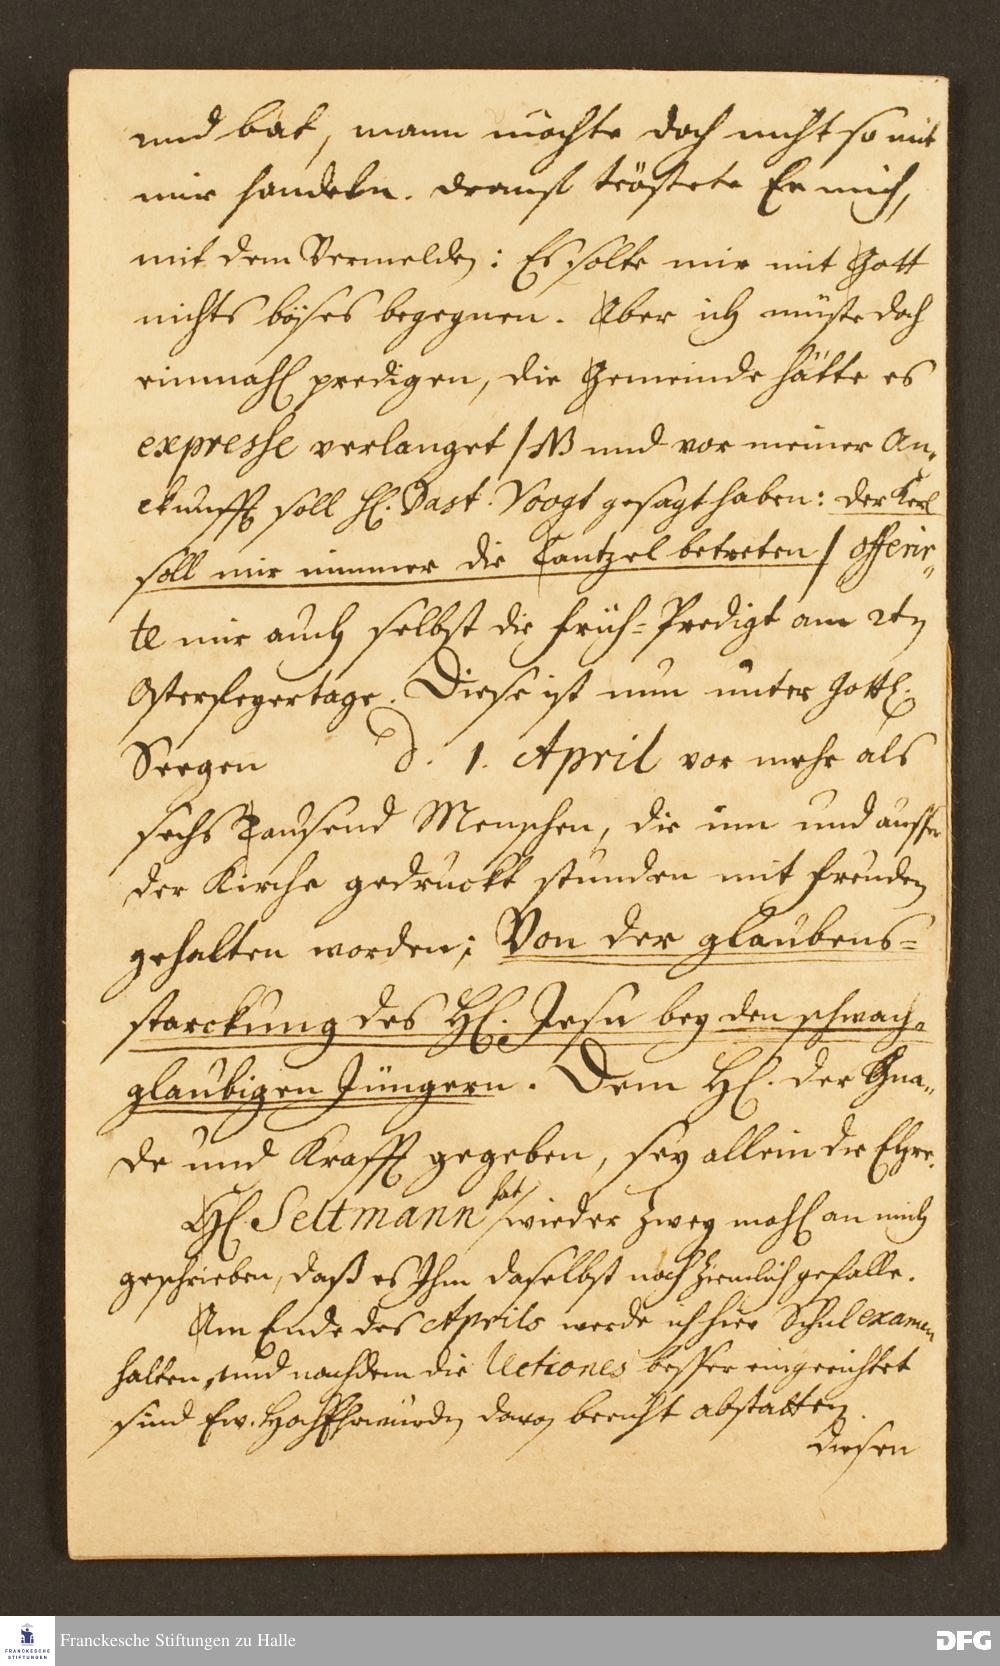 und bat, mann möchte doch nicht so mit
mir handeln. Drauff tröstete Er mich,
mit dem Vermelden: Es solte mir mit Gott
nichts böses begegnen. Aber ich müste doch
einmahl predigen, die Gemeinde hätte es
expresse verlanget /NB und vor meiner An-
ckunfft soll H. Past. Voogt gesagt haben: der Kerl
soll mir nimmer die Cantzel betreten / offerir-
te mir auch selbst die früh-Predigt am 2ten
Osterfeyertage. Diese ist nun unter Göttl.
Seegen d. 1. April vor mehr als
sechs Tausend Menschen, die inn und ausser
der Kirche gedruckt stunden mit freuden
gehalten worden; Von der glaubens-
starckung des H. Jesu bey den schwach-
glaubigen Jüngern. Dem H. der Gna-
de und Krafft gegeben, sey allein die Ehre.
H. Seltmann hat wieder zwey mahl an mich
geschrieben, daß es Ihm daselbst noch ziemlich gefalle.
Am Ende des Aprils werde ich hier Schul examen
halten, und nachdem die Lectiones besser eingerichtet
sind Ew. HochEhrwürden davon bericht abstatten.
diesen
FRANCKESCHE
STIFTUNGEN
Franckesche Stiftungen zu Halle
DFG